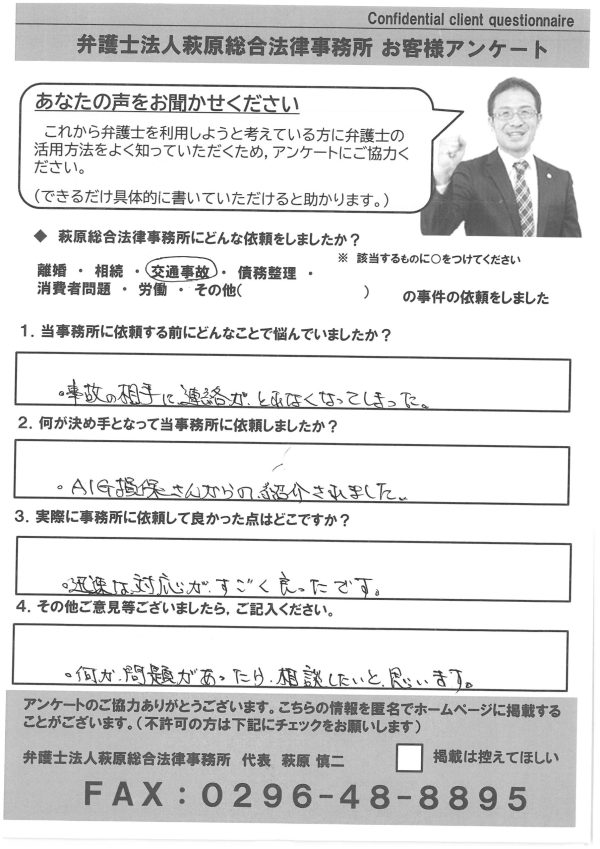 Confidential client questionnaire
弁護士法人萩原総合法律事務所 お客様アンケート
あなたの声をお聞かせください
これから弁護士を利用しようと考えている方に弁護士の
活用方法をよく知っていただくため，アンケートにご協力く
ださい。
（できるだけ具体的に書いていただけると助かります。）
◆ 萩原総合法律事務所にどんな依頼をしましたか？
※ 該当するものに○をつけてください
離婚 ・ 相続 ・ 交通事故 ・ 債務整理 ・
消費者問題 ・ 労働 ・ その他（ ） の事件の依頼をしました
1．当事務所に依頼する前にどんなことで悩んでいましたか？
。事故の相手に連絡がとれなくなってしまった。
2．何が決め手となって当事務所に依頼しましたか？
。AIG損保さんからの紹介されました。
3．実際に事務所に依頼して良かった点はどこですか？
。迅速な対応がすごく良ったです。
4．その他ご意見等ございましたら，ご記入ください。
。何か問題があったら相談したいと思います。
アンケートのご協力ありがとうございます。こちらの情報を匿名でホームページに掲載する
ことがございます。（不許可の方は下記にチェックをお願いします）
弁護士法人萩原総合法律事務所 代表 萩原 慎二 掲載は控えてほしい
FAX：0296-48-8895